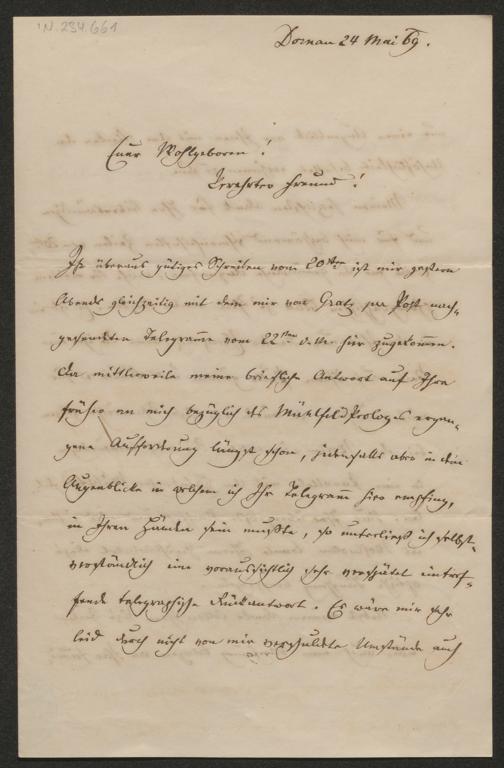 IN. 234.661
Dornau 24 Mai 69.
Euer Wohlgeboren!
Verehrter Freund!
Ihr überaus gütiges Schreiben vom 20ten ist mir gestern
Abends gleichzeitig mit dem mir von Gratz per Post nach-
gesendeten Telegramme vom 22ten detto hier zugekommen.
Da mittlerweile meine briefliche Antwort auf Ihre
früher an mich bezüglich des Mühlfeld Prologes ergan-
gene Aufforderung längst schon, jedenfalls aber in dem
Augenblicke in welchem ich Ihr Telegramm hier empfing,
in Ihren Händen sein mußte, so unterließ ich selbst-
verständlich eine voraussichtlich sehr verspätet eintref-
fende telegraphische Rückantwort. Es wäre mir sehr
leid durch nicht von mir verschuldete Umstände auch